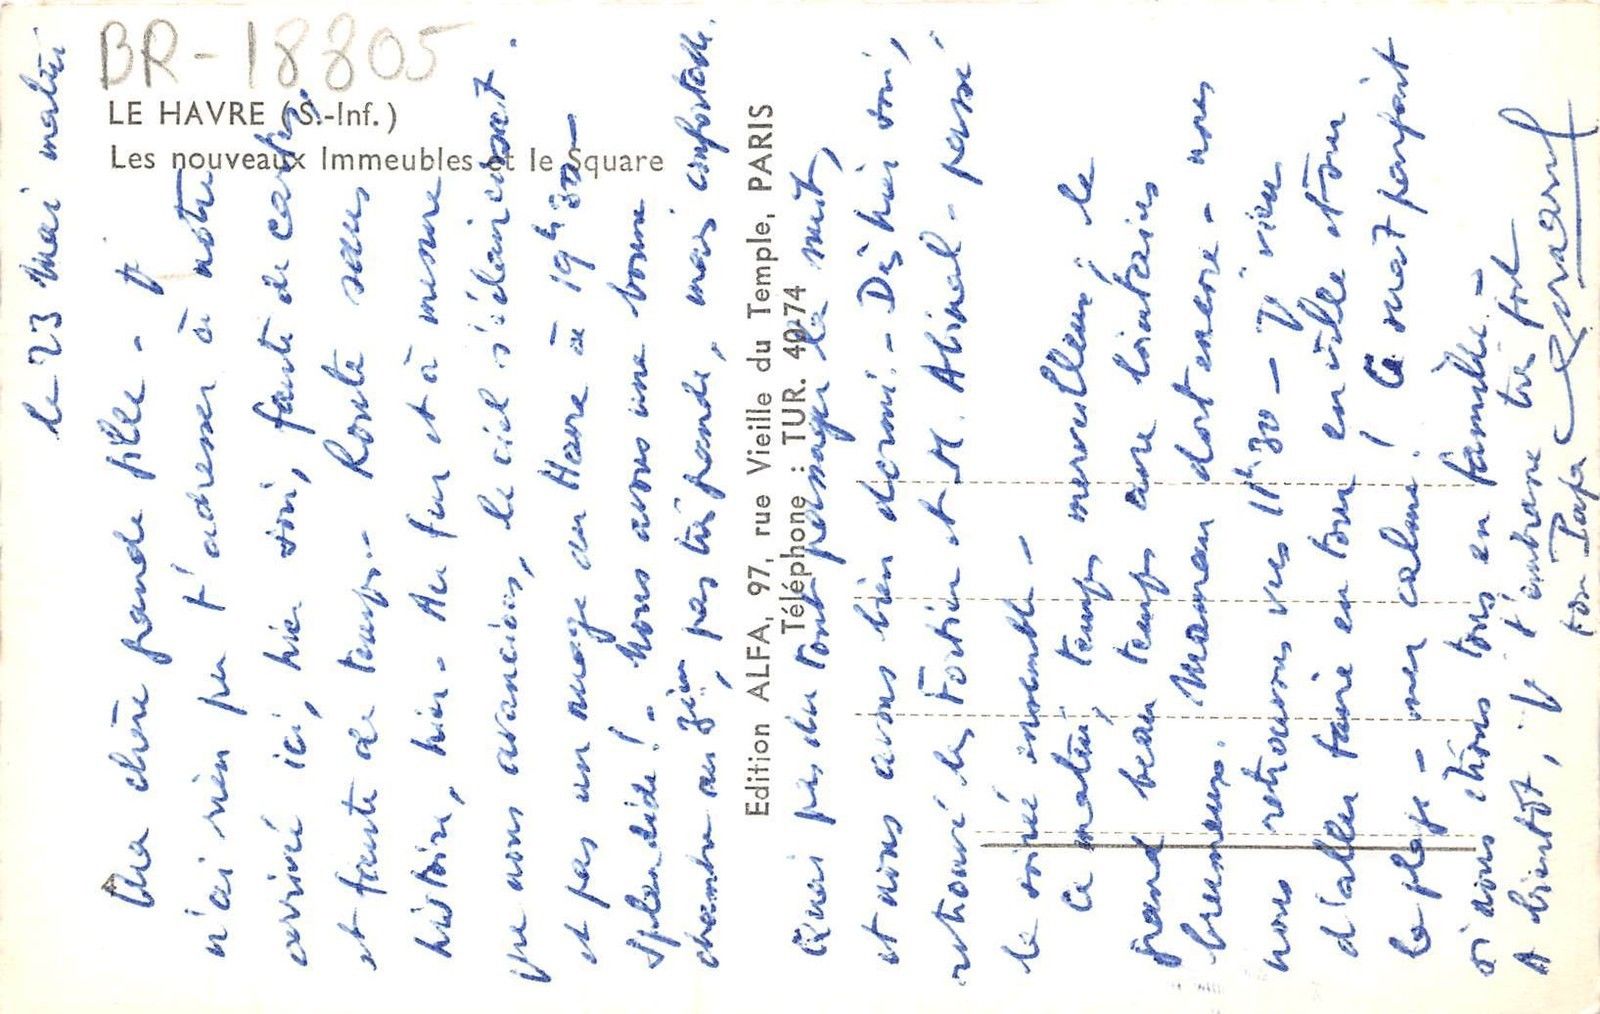 BR-18805
LE HAVRE (S.-Inf.)
Les nouveaux Immeubles et le Square
Edition ALFA, 97, rue Vieille du Temple, PARIS
Téléphone : TUR. 49-74
le 23 Mai matin
Ma chère grande fille - Je
n'ai rien pu t'adresser à notre
arrivée ici, hier soir, faute de cartes,
et faute de temps.- Route sans
histoire, hier. Au fur et à mesure
que nous avancions, le ciel s'éclaircissait.
et pas un nuage au Havre à 19h30 -
Splendide! - Nous avons une bonne
chambre au 3ème, pas très grande, mais confortable.
Quasi pas du tout passager la nuit,
et nous avons bien dormi.- Dès hier soir,
retrouvé les Fortier et M. Abinal - passé
la soirée ensemble -
Ce matin, temps merveilleux! le
grand beau temps avec lointaines
brumeux. Maman dort encore - nous
nous retrouvons vers 11h30 - Je viens
d'aller faire un tour en ville et sur
la plage - mer calme! Ce serait parfait
si nous étions tous en famille -
A bientôt, je t'embrasse très fort
ton Papa